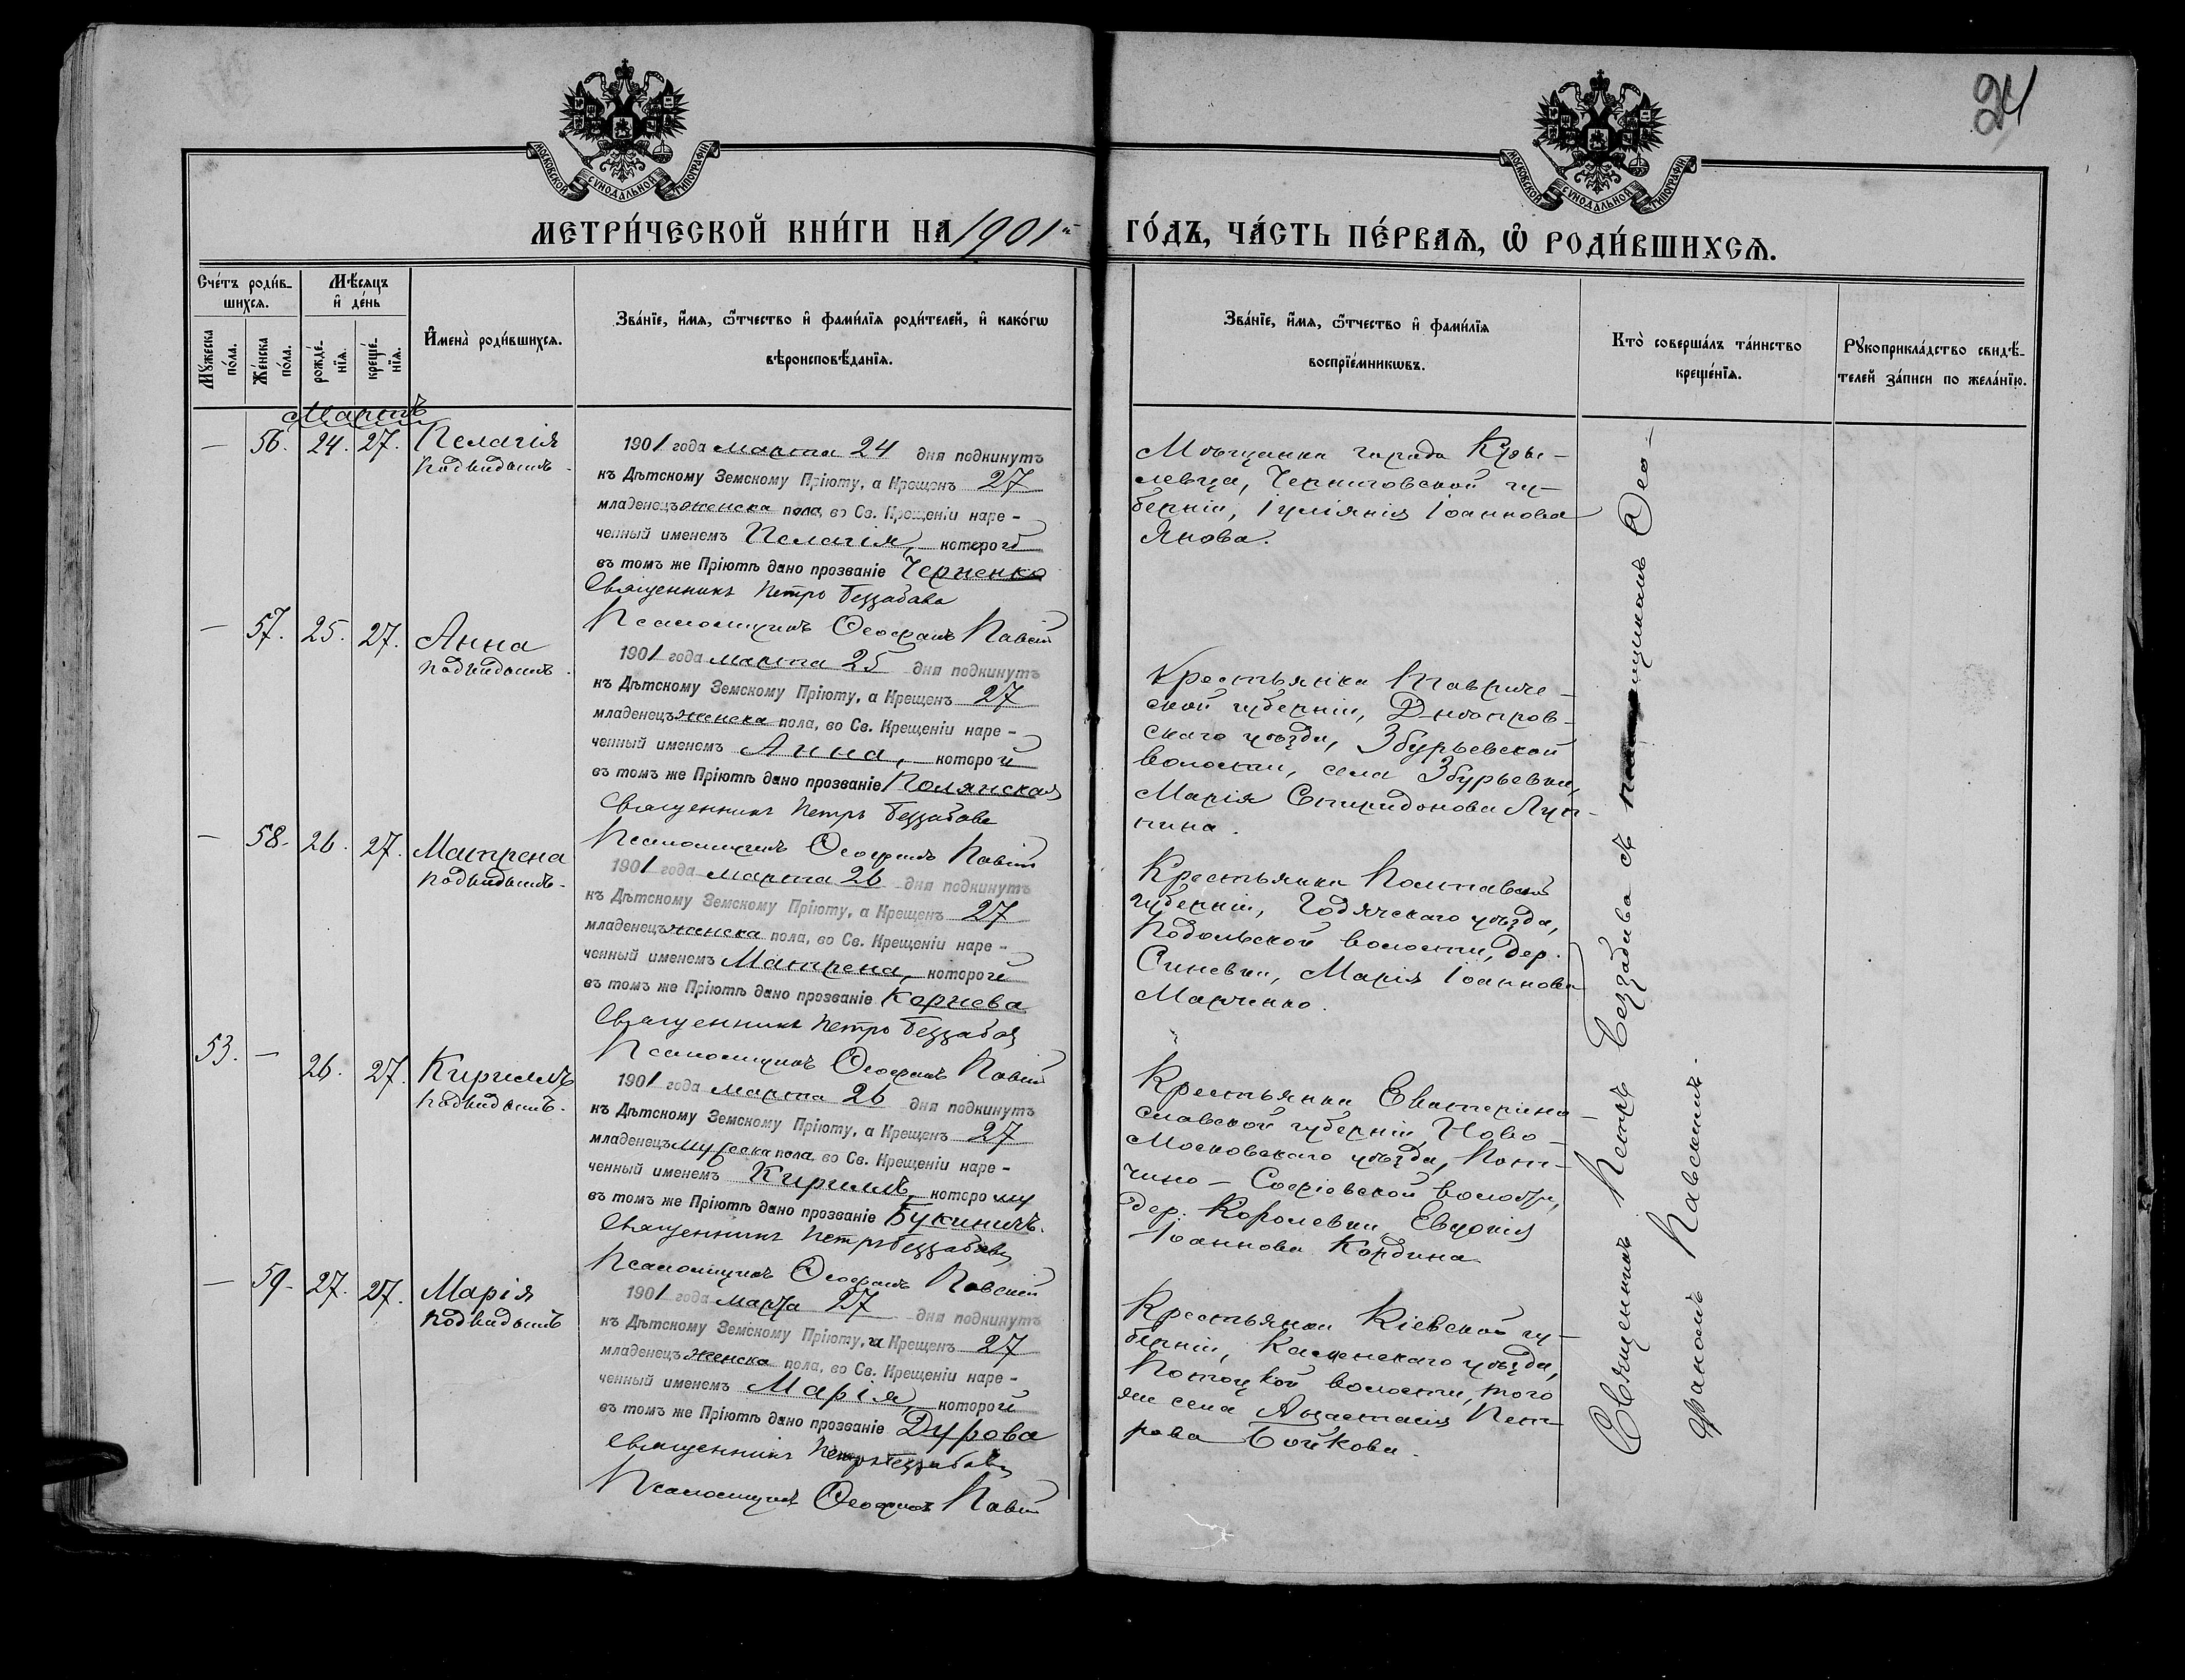 24
МОСКОВСКОЙ СУНОДАЛЬНОЙ ТИПОГРАФІИ
МОСКОВСКОЙ СУНОДАЛЬНОЙ ТИПОГРАФІИ
МЕТРИ́ЧЕСКОЙ КНИ́ГИ НА 1901й ГО́ДЪ, ЧА́СТЬ ПЕ́РВАѦ, Ѡ РОДИ́ВШИХСѦ.
Сче́тъ роди́в-
шихсѧ.
Мꙋ́жеска
по́ла.
Же́нска
по́ла.
Мѣ́сѧцъ
и҆ де́нь
рожде́-
нїѧ.
креще́-
нїѧ.
И҆мена̀ роди́вшихсѧ.
Зва́нїе, и҆́мѧ, ѻ҆́тчество и҆ фами́лїѧ роди́телей, и҆ како́гѡ
вѣроисповѣ́данїѧ.
Зва́нїе, и҆́мѧ, ѻ҆́тчество и҆ фами́лїѧ
воспрїе́мникѡвъ.
Кто̀ соверша́лъ та́инство
креще́нїѧ.
Рꙋкоприкла́дство свидѣ́-
телей за́писи по жела́нїю.
Мартъ
— 56. 24. 27. Пелагія
подкидышъ.
1901 года марта 24 дня подкинутъ
къ Дѣтскому Земскому Пріюту, а Крещенъ 27
младенецъ женска пола, во Св. Крещеніи наре-
ченный именемъ Пелагія, которой
въ томъ же Пріютѣ дано прозваніе Черненко
Священникъ Петръ Беззабава
Псаломщикъ Ѳеофанъ Павскій
Мѣщанка города Кроле-
левца, Черниговской гу-
берніи, Іуліянія Іоаннова
Янова.
— 57. 25. 27. Анна
подкидышъ.
1901 года марта 25 дня подкинутъ
къ Дѣтскому Земскому Пріюту, а Крещенъ 27
младенецъ женска пола, во Св. Крещеніи наре-
ченный именемъ Анна, которой
въ томъ же Пріютѣ дано прозваніе Полянская
Священникъ Петръ Беззабава
Псаломщикъ Ѳеофанъ Павскій
Крестьянка Тавриче-
ской губерніи, Днѣпров-
скаго уѣзда, Збурьевской
волости, села Збурьевки,
Марія Спиридонова
— 58. 26. 27. Матрена
подкидышъ.
1901 года марта 26 дня подкинутъ
къ Дѣтскому Земскому Пріюту, а Крещенъ 27
младенецъ женска пола, во Св. Крещеніи наре-
ченный именемъ Матрена, которой
въ томъ же Пріютѣ дано прозваніе Корнева
Священникъ Петръ Беззабава
Псаломщикъ Ѳеофанъ Павскій
Крестьянка Полтавской
губерніи, Годячскаго уѣзда,
Подольской волости, дер.
Синевки, Марія Іоаннова
Марченко.
53. — 26. 27. Кириллъ
подкидышъ.
1901 года марта 26 дня подкинутъ
къ Дѣтскому Земскому Пріюту, а Крещенъ 27
младенецъ мужеска пола, во Св. Крещеніи наре-
ченный именемъ Кириллъ, которому
въ томъ же Пріютѣ дано прозваніе Букиничъ.
Священникъ Петръ Беззабава
Псаломщикъ Ѳеофанъ Павскій
Крестьянка Екатерино-
славской губерніи, Ново-
московскаго уѣзда,
Софіевской волости,
дер. Королевки Евдокія
Іоаннова Кордина
— 59. 27. 27. Марія
подкидышъ
1901 года марта 27 дня подкинутъ
къ Дѣтскому Земскому Пріюту, а Крещенъ 27
младенецъ женска пола, во Св. Крещеніи наре-
ченный именемъ Марія, которой
въ томъ же Пріютѣ дано прозваніе Дурова
Священникъ Петръ Беззабава
Псаломщикъ Ѳеофанъ Павскій
Крестьянка Кіевской гу-
берніи, Каневскаго уѣзда,
Потоцкой волости, того
же села Анастасія Пет-
рова Бойкова.
Священникъ Петръ Беззабава съ псаломщикомъ Ѳео-
фаномъ Павскимъ.